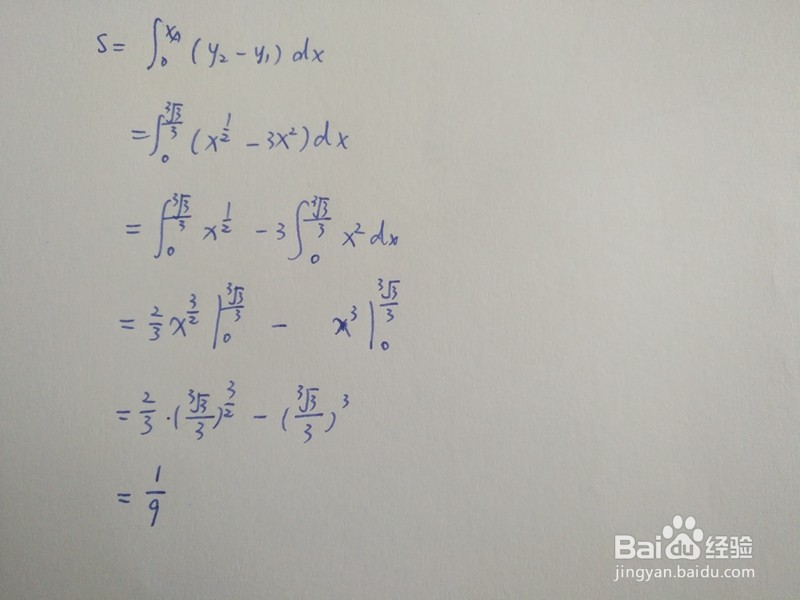 S = ∫₀^(x_A) (y₂ - y₁) dx
= ∫₀^(∛3/3) (x^(1/2) - 3x²) dx
= ∫₀^(∛3/3) x^(1/2) - 3 ∫₀^(∛3/3) x² dx
= 2/3 x^(3/2) |₀^(∛3/3) - x³ |₀^(∛3/3)
= 2/3 · (∛3/3)^(3/2) - (∛3/3)³
= 1/9
Baidu经验
jingyan.baidu.com